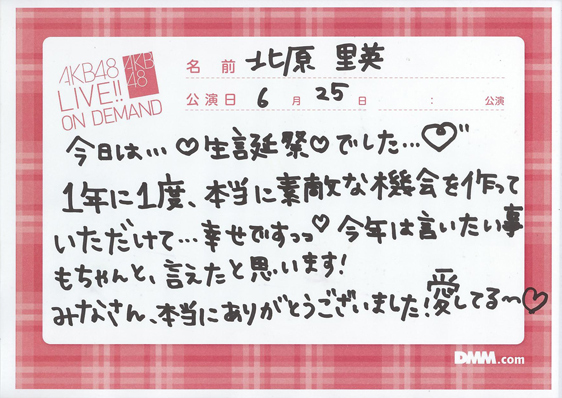 AKB48
LIVE!!
ON DEMAND
AKB
48
名 前 北原 里英
公演日 6 月 25 日 : 公演
今日は…♡生誕祭♡でした…♡
1年に1度、本当に素敵な機会を作って
いただけて…幸せですっっ♡今年は言いたい事
もちゃんと、言えたと思います!
みなさん、本当にありがとうございました!愛してる〜♡
DMM.com